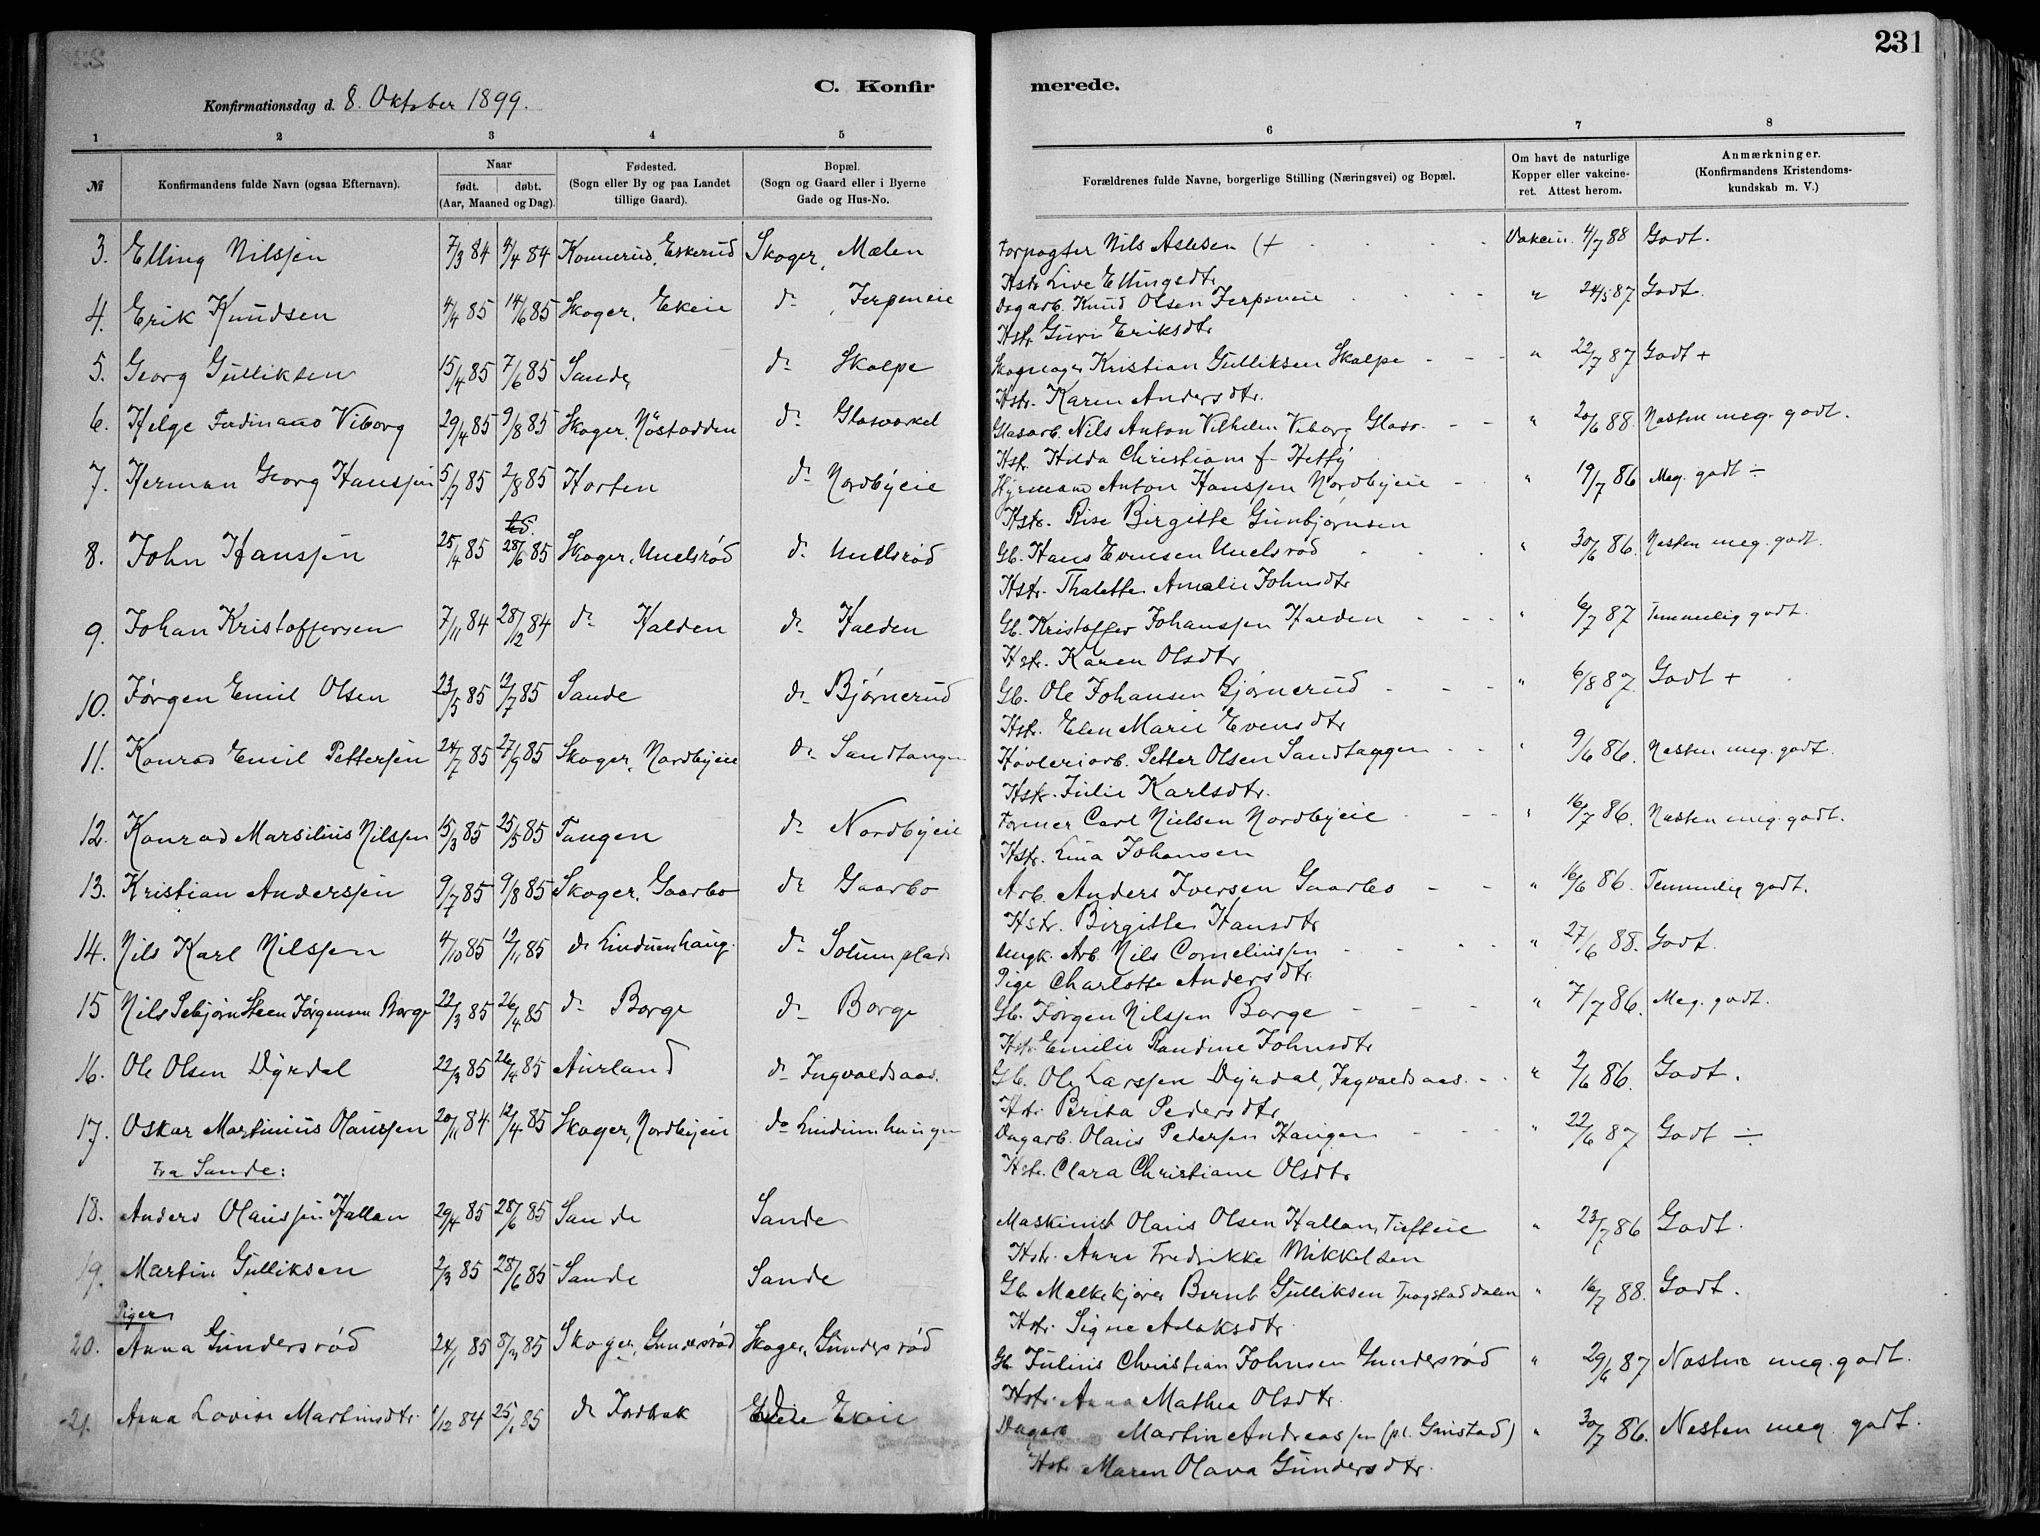 231
C. Konfir merede.
Konfirmationsdag d. 8. Oktober 1899.
1 2 3 4 5 6 7 8
№ Konfirmandens fulde Navn (ogsaa Efternavn). Naar født. døbt. (Aar, Maaned og Dag). Fødested. (Sogn eller By og paa Landet tillige Gaard). Bopæl. (Sogn og Gaard eller i Byerne Gade og Hus-No. Forældrenes fulde Navne, borgerlige Stilling (Næringsvei) og Bopæl. Om havt de naturlige Kopper eller vakcineret. Attest herom. Anmærkninger. (Konfirmandens Kristendomskundskab m. V.)
3. Elling Nilssen 7/3 84 /4 84 Konnerud, Eskerud Skoger, Mælen Forpagter Nils Aslesen (+ Vakcin. 4/7 88 Godt.
Hstr. Live Ellingsdtr
4. Erik Knudsen 4/4 85 14/6 85 Skoger, Ekeie do Jerpeneie Dagarb. Knud Olsen Jerpeneie " 24/5 87 Godt.
Hstr Guri Eriksdtr
5. Georg Gulliksen 15/4 85 7/6 85 Sande, do Skalpe Kristian Gulliksen Skalpe " 22/7 87 Godt +
Hstr. Karen Andersdtr.
6. Helge Ferdinand Viborg 29/4 85 9/8 85 Skoger, Nøstodden do Glasværket Glasarb. Nils Anton Vilhelm Viborg Glasv. " 20/6 88. Næsten meg. godt.
Hstr. Hilda Christiane f. Hetty
7. Herman Georg Hanssen 5/7 85 2/8 85 Horten do Nordbyeie Hyrmand Anton Hanssen Nordbyeie " 19/7 86 Meg. godt ÷
Hstr. Rise Birgitte Gunbjørnsen
8. John Hanssen 25/4 85 28/6 85 Skoger, Unelsrød do Unelsrød Gb. Hans Evensen Unelsrød " 30/6 86. Næsten meg. godt.
Hstr. Thalette Amalie Johnsdtr
9. Johan Kristoffersen 7/11 84 28/12 84 do Halden do Halden Gb. Kristoffer Johanssen Halden " 6/7 87 Temmelig godt.
Hstr. Karen Olsdtr
10. Jørgen Emil Olsen 23/5 85 12/7 85 Sande do Bjørnerud Gb. Ole Johansen Bjørnerud " 6/8 87. Godt +
Hstr. Elen Marie Evensdtr
11. Konrad Emil Pettersen 24/7 85 27/9 85 Skoger, Nordbyeie do Sandtangen Høvleriarb. Petter Olsen Sandtangen " 9/6 86. Næsten meg. godt.
Hstr. Julie Karlsdtr.
12. Konrad Marsilius Nilssen 15/3 85 25/5 85 Tangen do Nordbyeie Former Carl Nielsen Nordbyeie " 16/7 86. Næsten meg. godt.
Hstr. Lina Johansen
13. Kristian Anderssen 9/7 85 9/8 85 Skoger, Gaarbo do Gaarbo Arb. Anders Iversen Gaarbo " 16/6 86. Temmelig godt.
Hstr. Birgitte Hansdtr
14. Nils Karl Nilssen 4/10 85 12/11 85 do Lindumhaug. do Solumplads Ungk. Arb. Nils Corneliussen " 27/6 88. Godt.
Pige Charlotte Andersdtr.
15 Nils Sebjørn Steen Jørgensen Borge 22/3 85 26/4 85 do Borge do Borge Gb. Jørgen Nilssen Borge " 7/7 86. Meg. godt.
Hstr. Emilie Randine Johnsdtr
16. Ole Olsen Dyrdal 22/3 85 26/4 85 Aurland do Ingvaldsaas. Gb. Ole Larssen Dyrdal, Ingvaldsaas. " 2/6 86. Godt.
Hstr. Brita Pedersdtr
17. Oskar Martinius Olaussen 20/11 84 12/4 85 Skoger, Nordbyeie do Lindumhaugen Dagarb. Olaus Pedersen Haugen " 22/6 87 Godt ÷
Hstr. Clara Christiane Olsdtr
Fra Sande:
18. Anders Olaussen Hallan 29/4 85 28/6 85 Sande Sande Maskinist Olaus Olsen Hallan, Tufteie " 23/7 86 Godt.
Hstr. Anne Fredrikke Mikkelsen
19. Martin Gulliksen 2/3 85 28/6 85 Sande Sande Gb. Melkekjører Bernt Gulliksen " 16/7 88. Godt.
Hstr. Signe Aslaksdtr.
Piger
20. Anna Gundersrød 24/1 85 8/3 85 Skoger, Gundersrød Skoger, Gundersrød Gb. Julius Christian Johnsen Gundersrød " 29/6 87 Næsten meg. godt.
Hstr. Anna Mathea Olsdtr.
21. Anna Lovise Martinsdtr. 1/12 84 25/1 85 do Jordbræk Ekeie Dagarb Martin Andreassen (pl. Grinstad) " 30/7 86. Nesten meg godt.
Hstr Maren Olava Gundersdtr.